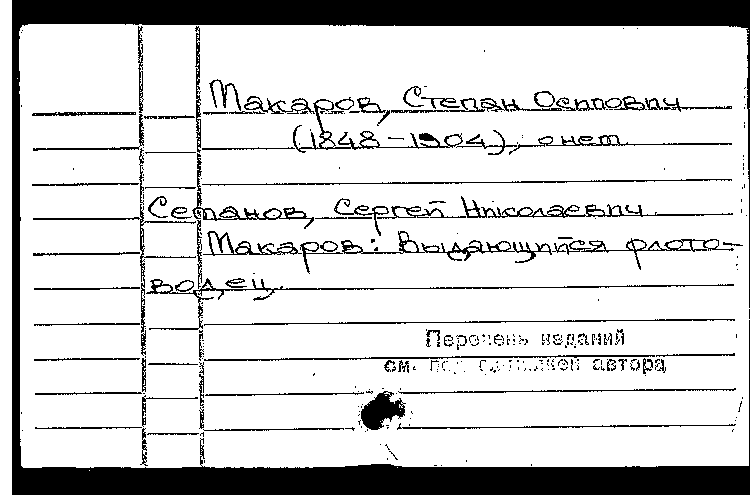 Макаров, Степан Осипович
(1848-1904), о нем.
Семанов, Сергей Николаевич
Макаров: Выдающийся флото-
водец.
Перечень изданий
см. под ссылкой автора